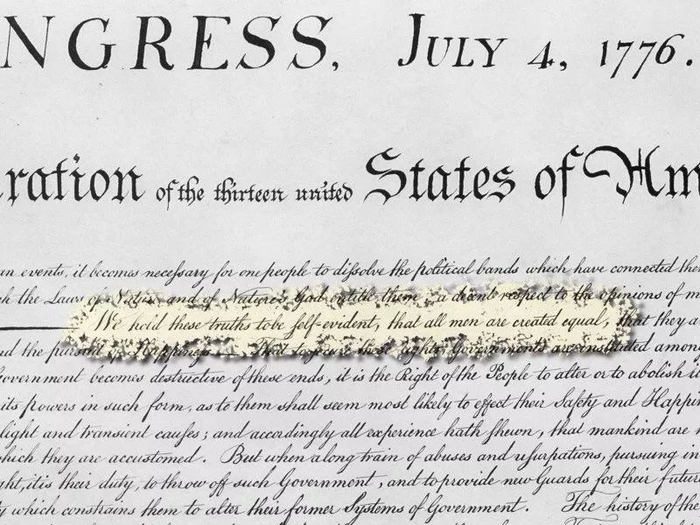 NGRESS, JULY 4, 1776.
ration of the thirteen united States of Am
an events, it becomes necessary for one people to dissolve the political bands which have connected the
h the Laws of Nature and of Nature's God entitle them, a decent respect to the opinions of m
We hold these truths to be self-evident, that all men are created equal, that they a
nd the pursuit of Happiness. — That to secure these rights, Governments are instituted among
Government becomes destructive of these ends, it is the Right of the People to alter or to abolish it
its powers in such form, as to them shall seem most likely to effect their Safety and Happin
light and transient causes; and accordingly all experience hath shewn, that mankind are m
which they are accustomed. But when a long train of abuses and usurpations, pursuing in
ght, it is their duty, to throw off such Government, and to provide new Guards for their future
ty which constrains them to alter their former Systems of Government. The history of the